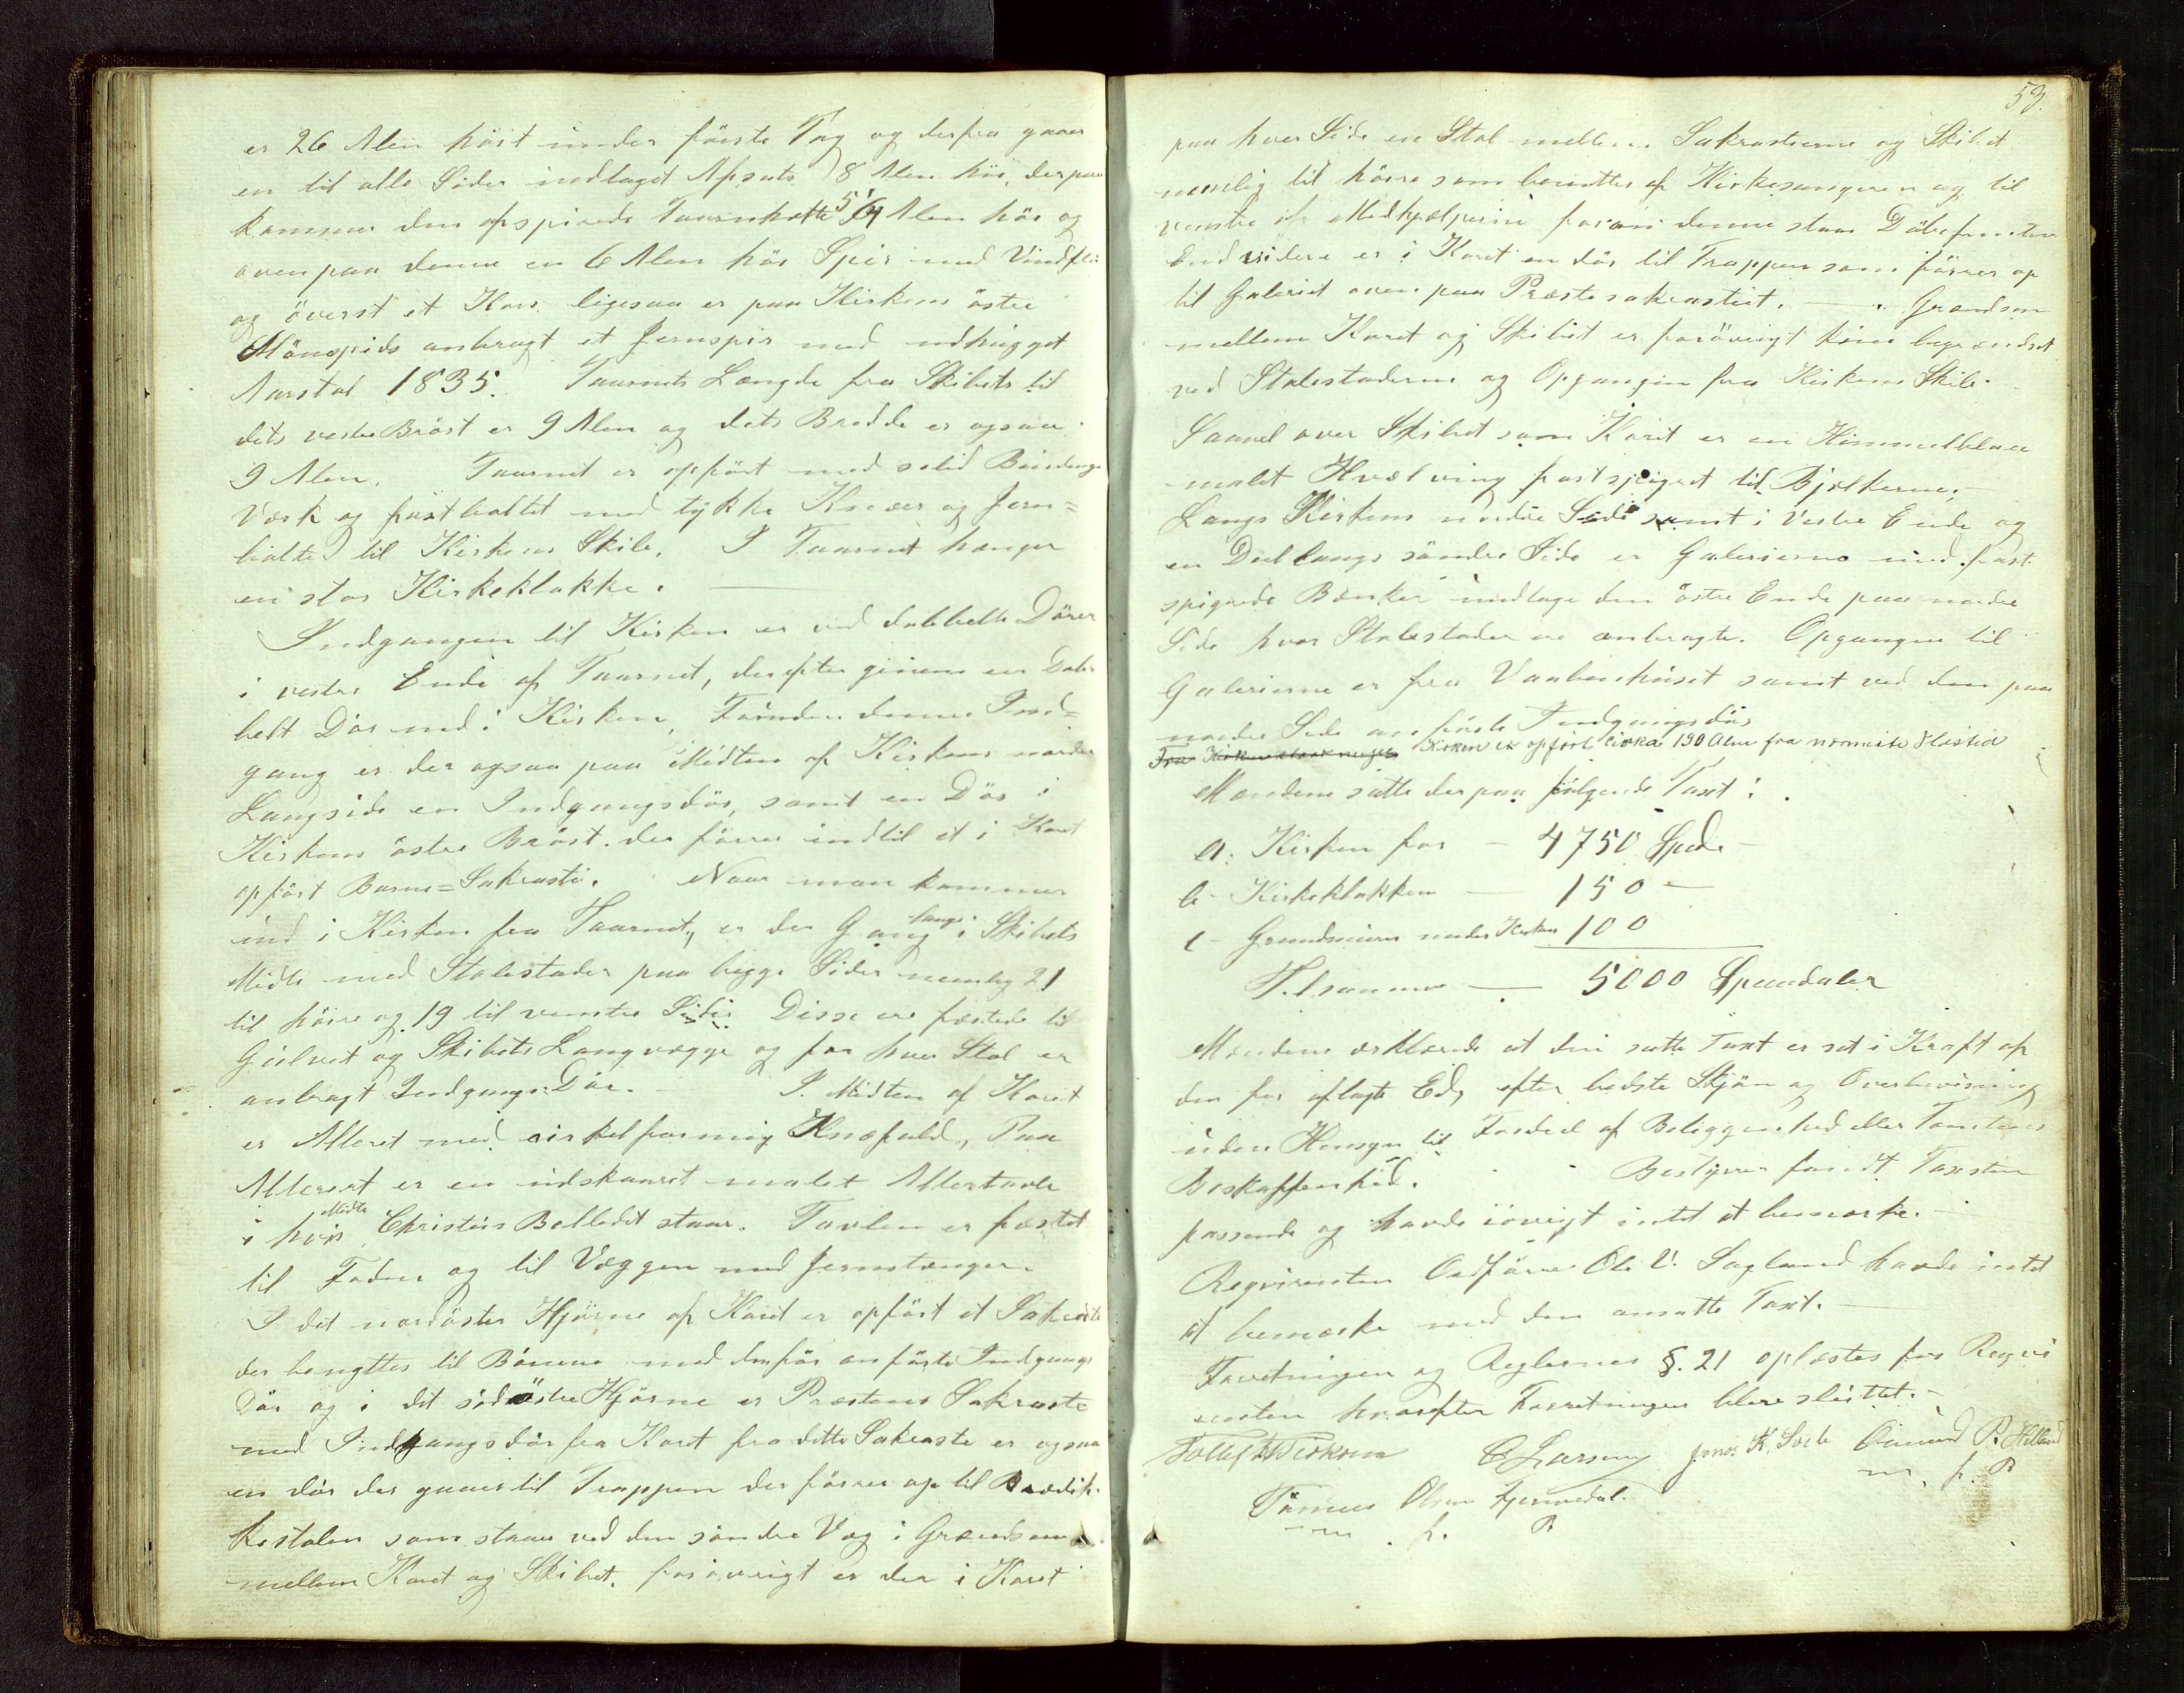 er 26 Alen höit under förste Tag og derfra gaaer
en til alle Sider indtaget Afsats 8 Alen höi, derpaa
kommer den afspidsede Taarnhatte 5¼ Alen höi og
ovenpaa denne en 6 Alen höi Spir med Vindflöi
og överst et Kors ligesaa er paa Kirkens östre
Mönspids anbragt et Jernspir med udhugget
Aarstal 1835. Taarnets Længde fra Skibets til
dets vestre Bröst er 9 Alen og dets Bredde er ogsaa
9 Alen. Taarnet er opfört med solid Bindings
Værk og fastboltet med tykke Knæer og Jern=
bolte til Kirkens Skib. I Taarnet hænger
en stor Kirkeklokke.
Indgangen til Kirken er ved dobbelte Dörer
i vestre Ende af Taarnet, derefter gjenem en Dob
belt Dör ind i Kirken, Foruden denne Ind=
gang er der ogsaa paa Midten af Kirkens nordre
Langside en Indgangsdör, samt en Dör i
Kirkens östre Bröst der förer indtil et i Koret
opfört Barne=Sakrasti. Naar man kommer
ind i Kirken fra Taarnet, er der Gang langs i Skibets
Midte med Stolestader paa begge Sider nemlig 21
til höire og 19 til venstre Side. Disse ere fæstede til
Gulvet og Skibets Langvægge og for hver Stol er
anbragt Indgangs Dör. I Midten af Koret
er Alteret med cirkelformig Knæfald, Paa
Alteret er en udskaaret malet Altertavle
i hvis Midte Christus Belledet staar. Tavlen er fæstet
til Foden og til Væggen med Jernstænger.
I det nordöstre Hjörne af Koret er opfört et Sakraste
der benyttes til Börnene med derför anförte Indgangs
Dör og i det sydöstre Hjörne er Præstens Sakraste
med Indgangsdör fra Koret fra dette Sakraste er ogsaa
en dör der gaaer til Trappen der förer op til Prædik-
kestolen som staar ved den söndre Væg i Grændsen
mellem Koret og Skibet. forövrigt er der i Koret
53.
paa hver Side en Stol mellem Sakrastierne og Skibet
nemlig til höire som benyttes af Kirkesangeren og til
venstre af Medhjælperne foran denne staar Döbefunten
Endvidere er i Koret en dör til Trappen som förer op
til Galeriet oven paa Præstesakrastiet. Grændsen
mellem Koret og Skibet er forövrigt kuns begrændset
ved Stolestaderne og Opgangen fra Kirkens Skib.
Saavel over Skibet som Koret er en Himmelblaa
malet Hvælving fastspiigret til Bjelkerne.
Langs Kirkens nordre Side samt i Vestre Ende og
en Deel langs söndre Side er Galerierne med fast
spigrede Bænker undtage den östre Ende paa nordre
Side hvor Stolestader ere anbragte. Opgangen til
Galerierne er fra Vaabenhuset samt ved den paa
nordre Side anförte Indgangsdör
Kirken er opfört cirka 190 Alne fra nærmeste Ildsted
Mændene satte derpaa fölgende Taxt:
a. Kirken for - 4750 Spd.
b- Kirkeklokken — 150 —
c- Grundmuren under Kirken 100
Tilsammen — 5000 Speciedaler
Mændene erklærede at den satte Taxt er sat i Kraft af
den for aflagte Ed, efter bedste Skjön og Overbevisning
uden Hensyn til Fordeel af Beliggenhed eller Tomtens
Beskaffenhed. Bestyrer fandt Taxsten
passende og havde iövrigt intet at bemærke.
Reqvirenten Ordförer Ole V. Sagland havde intet
at bemærke med den ansatte Taxt.
Foretningen og Reglernes §. 21 oplæstes for Reqvi
renten hvorefter Forretningen blev sluttet.
C Larsen Jonas K. Svele Omund P. Helland
m. f. P
Tönnes Olsen Gjermedal.
m. f. P